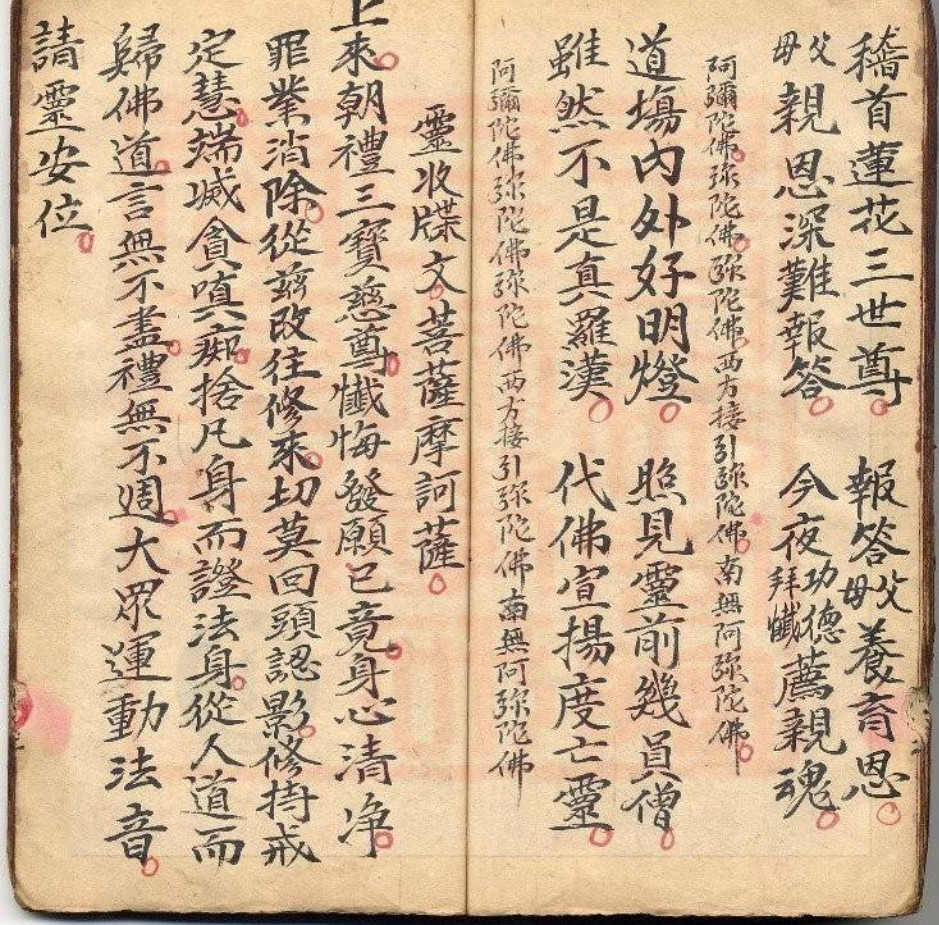 稽首蓮花三世尊 報答父母養育恩
父母親恩深難報答 今夜功德拜懺薦親魂
阿彌陀佛弥陀佛弥陀佛西方接引弥陀佛南無阿弥陀佛
道場内外好明燈 照見靈前幾員僧
雖然不是真羅漢 代佛宣揚度亡靈
阿彌陀佛弥陀佛弥陀佛弥陀佛西方接引弥陀佛南無阿弥陀佛
靈收牒文菩薩摩訶薩
上來朝禮三寶慈尊懺悔發願已竟身心清净
罪業消除從兹改往修來切莫回頭認影修持戒
定慧端滅貪嗔痴捨凡身而證法身從人道而
歸佛道言無不盡禮無不週大眾運動法音
請靈安位